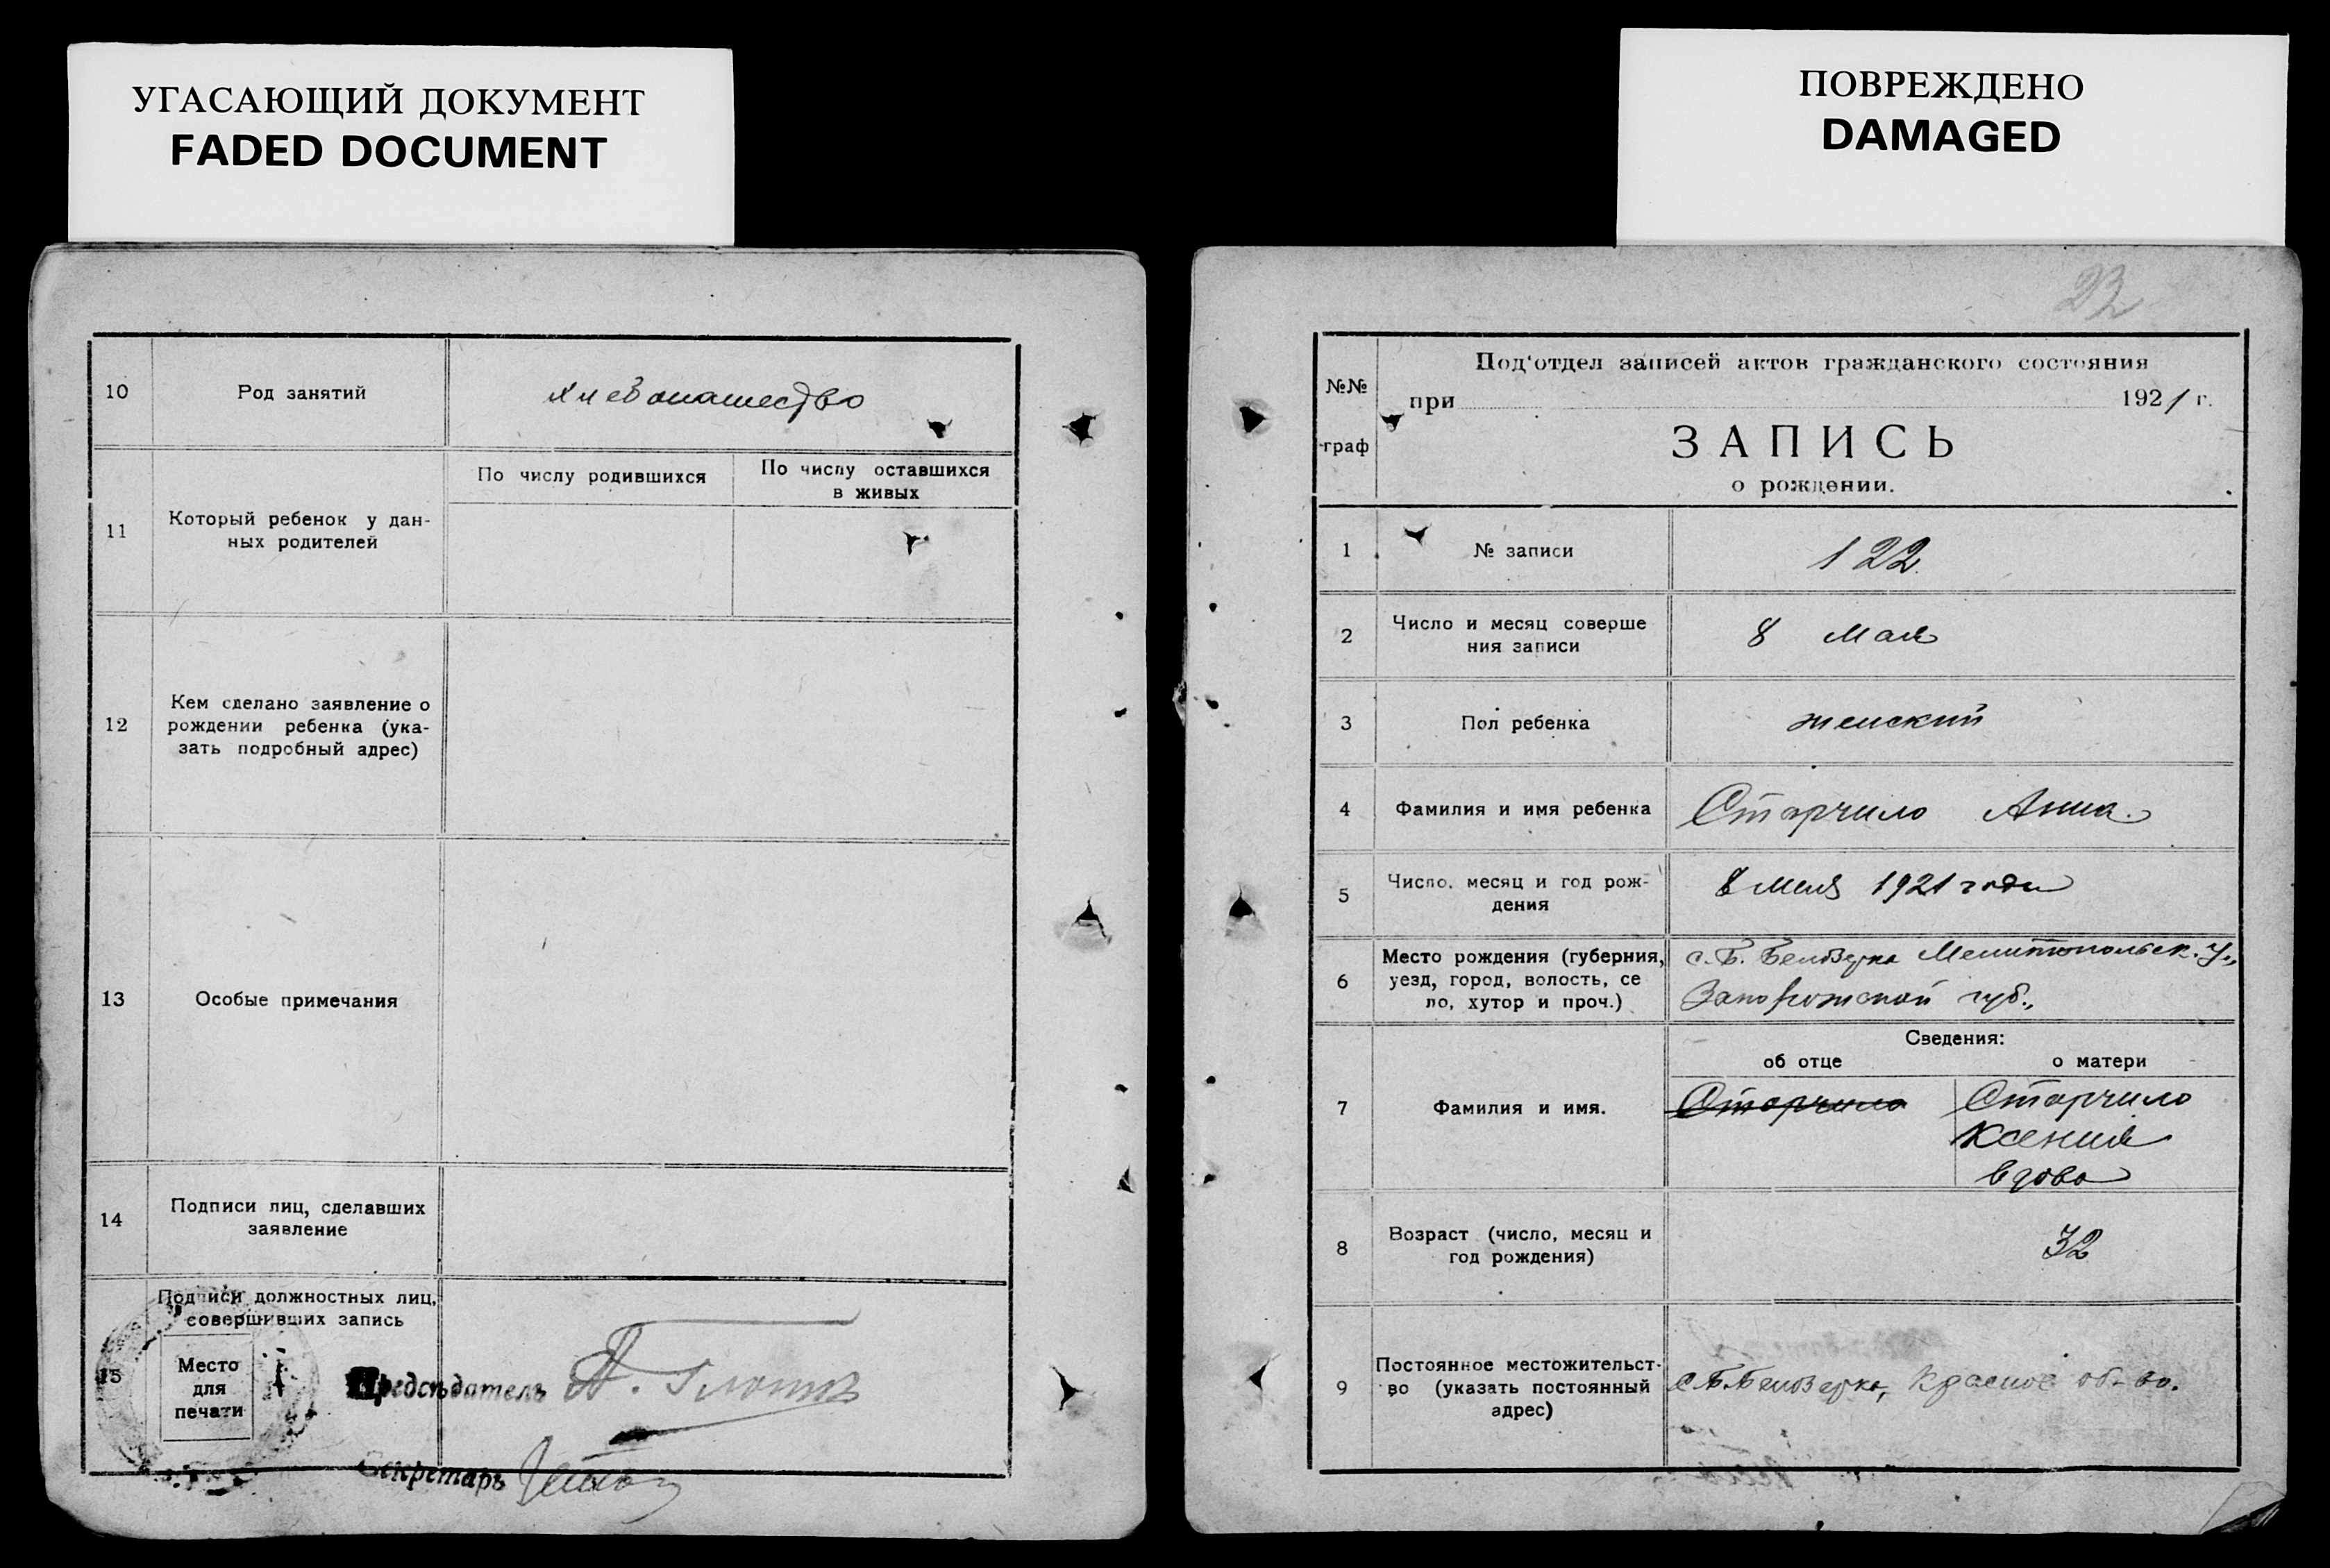 УГАСАЮЩИЙ ДОКУМЕНТ
FADED DOCUMENT
10
Род занятий
хлебопашество
11
Который ребенок у дан-
ных родителей
По числу родившихся
По числу оставшихся
в живых
12
Кем сделано заявление о
рождении ребенка (ука-
зать подробный адрес)
13
Особые примечания
14
Подписи лиц, сделавших
заявление
15
Подписи должностных лиц,
совершивших запись
Место
для
печати
Председатель
Секретарь
ПОВРЕЖДЕНО
DAMAGED
23
№№
граф
Под'отдел записей актов гражданского состояния
при 1921 г.
ЗАПИСЬ
о рождении.
1
№ записи
122
2
Число и месяц соверше
ния записи
8 мая
3
Пол ребенка
женский
4
Фамилия и имя ребенка
Старчило Анна.
5
Число, месяц и год рож-
дения
8 мая 1921 года
6
Место рождения (губерния,
уезд, город, волость, се
ло, хутор и проч.)
с. Б. Белозерка Мелитопольск. у.,
Запорожской губ.,
Сведения:
об отце
о матери
7
Фамилия и имя.
Старчило
Старчило
Ксения
вдова
8
Возраст (число, месяц и
год рождения)
32
9
Постоянное местожительст-
во (указать постоянный
адрес)
с. Б. Белозерка, Красное об-во.